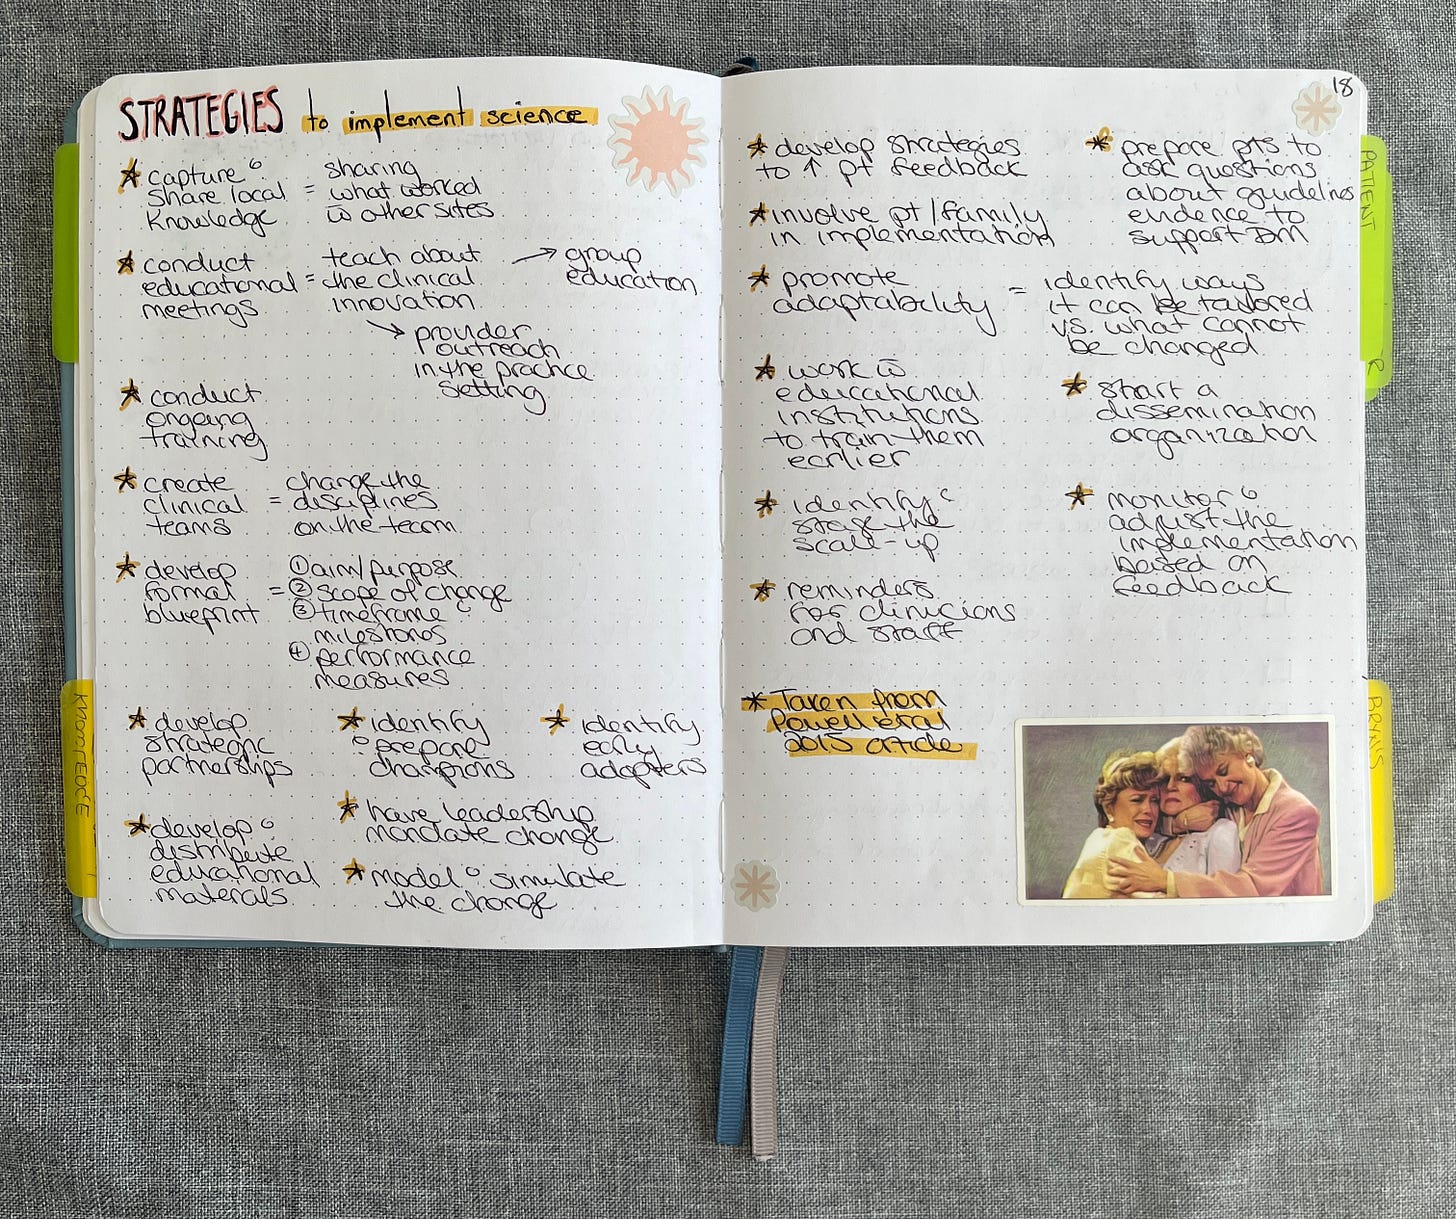 STRATEGIES to implement science
* capture &
share local
knowledge
= sharing
what worked
w̄ other sites
* conduct
educational
meetings
= teach about
the clinical
innovation
→ group
education
→ provider
outreach
in the practice
setting
* conduct
ongoing
training
* create
clinical
teams
= change the
disciplines
on the team
* develop
formal
blueprint
= ① aim/purpose
② scope of change
③ timeframe &
milestones
④ performance
measures
* develop
strategic
partnerships
* identify
& prepare
champions
* identify
early
adopters
* develop &
distribute
educational
materials
* have leadership
mandate change
* model & simulate
the change
18
* develop strategies
to ↑ pt feedback
* involve pt/family
in implementation
* prepare pts to
ask questions
about guidelines
evidence to
support DM
* promote
adaptability
= identify ways
it can be tailored
vs. what cannot
be changed
* work w̄
educational
institutions
to train them
earlier
* start a
dissemination
organization
* identify &
stage the
scale-up
* monitor &
adjust the
implementation
based on
feedback
* reminders
for clinicians
and staff
* Taken from
Powell et al
2015 article
KNOWLEDGE
PATIENT
R